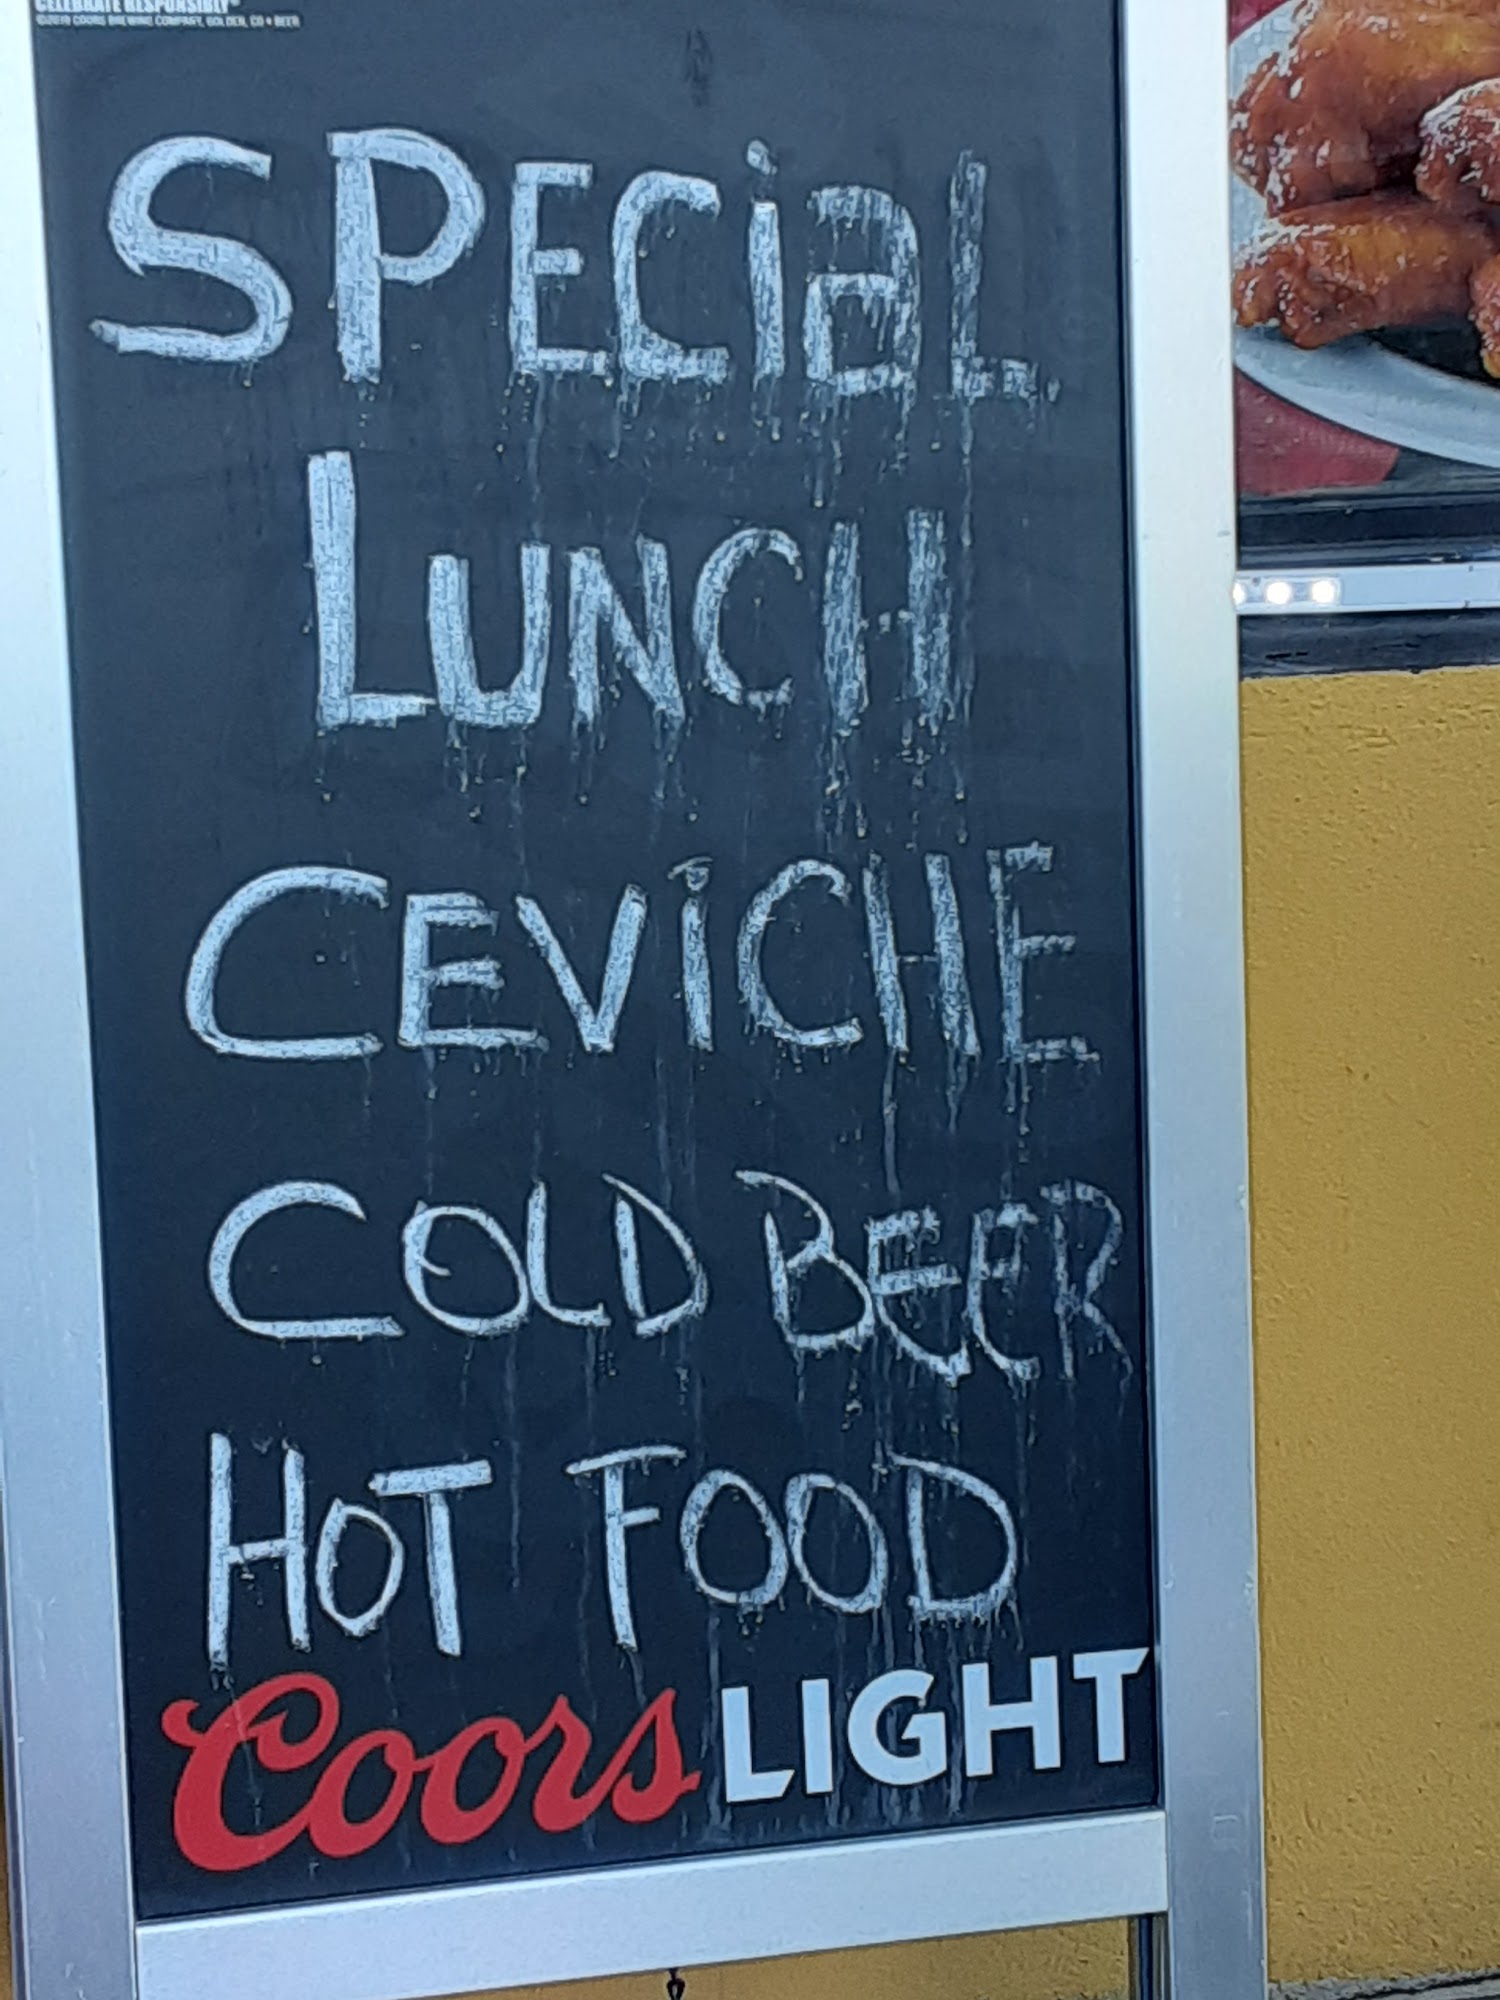 CELEBRATE RESPONSIBLY®
©2019 COORS BREWING COMPANY, GOLDEN, CO • BEER
SPECiaL
LUNCH
CEViCHE
COLD BEER
HOT FOOD
Coors LIGHT